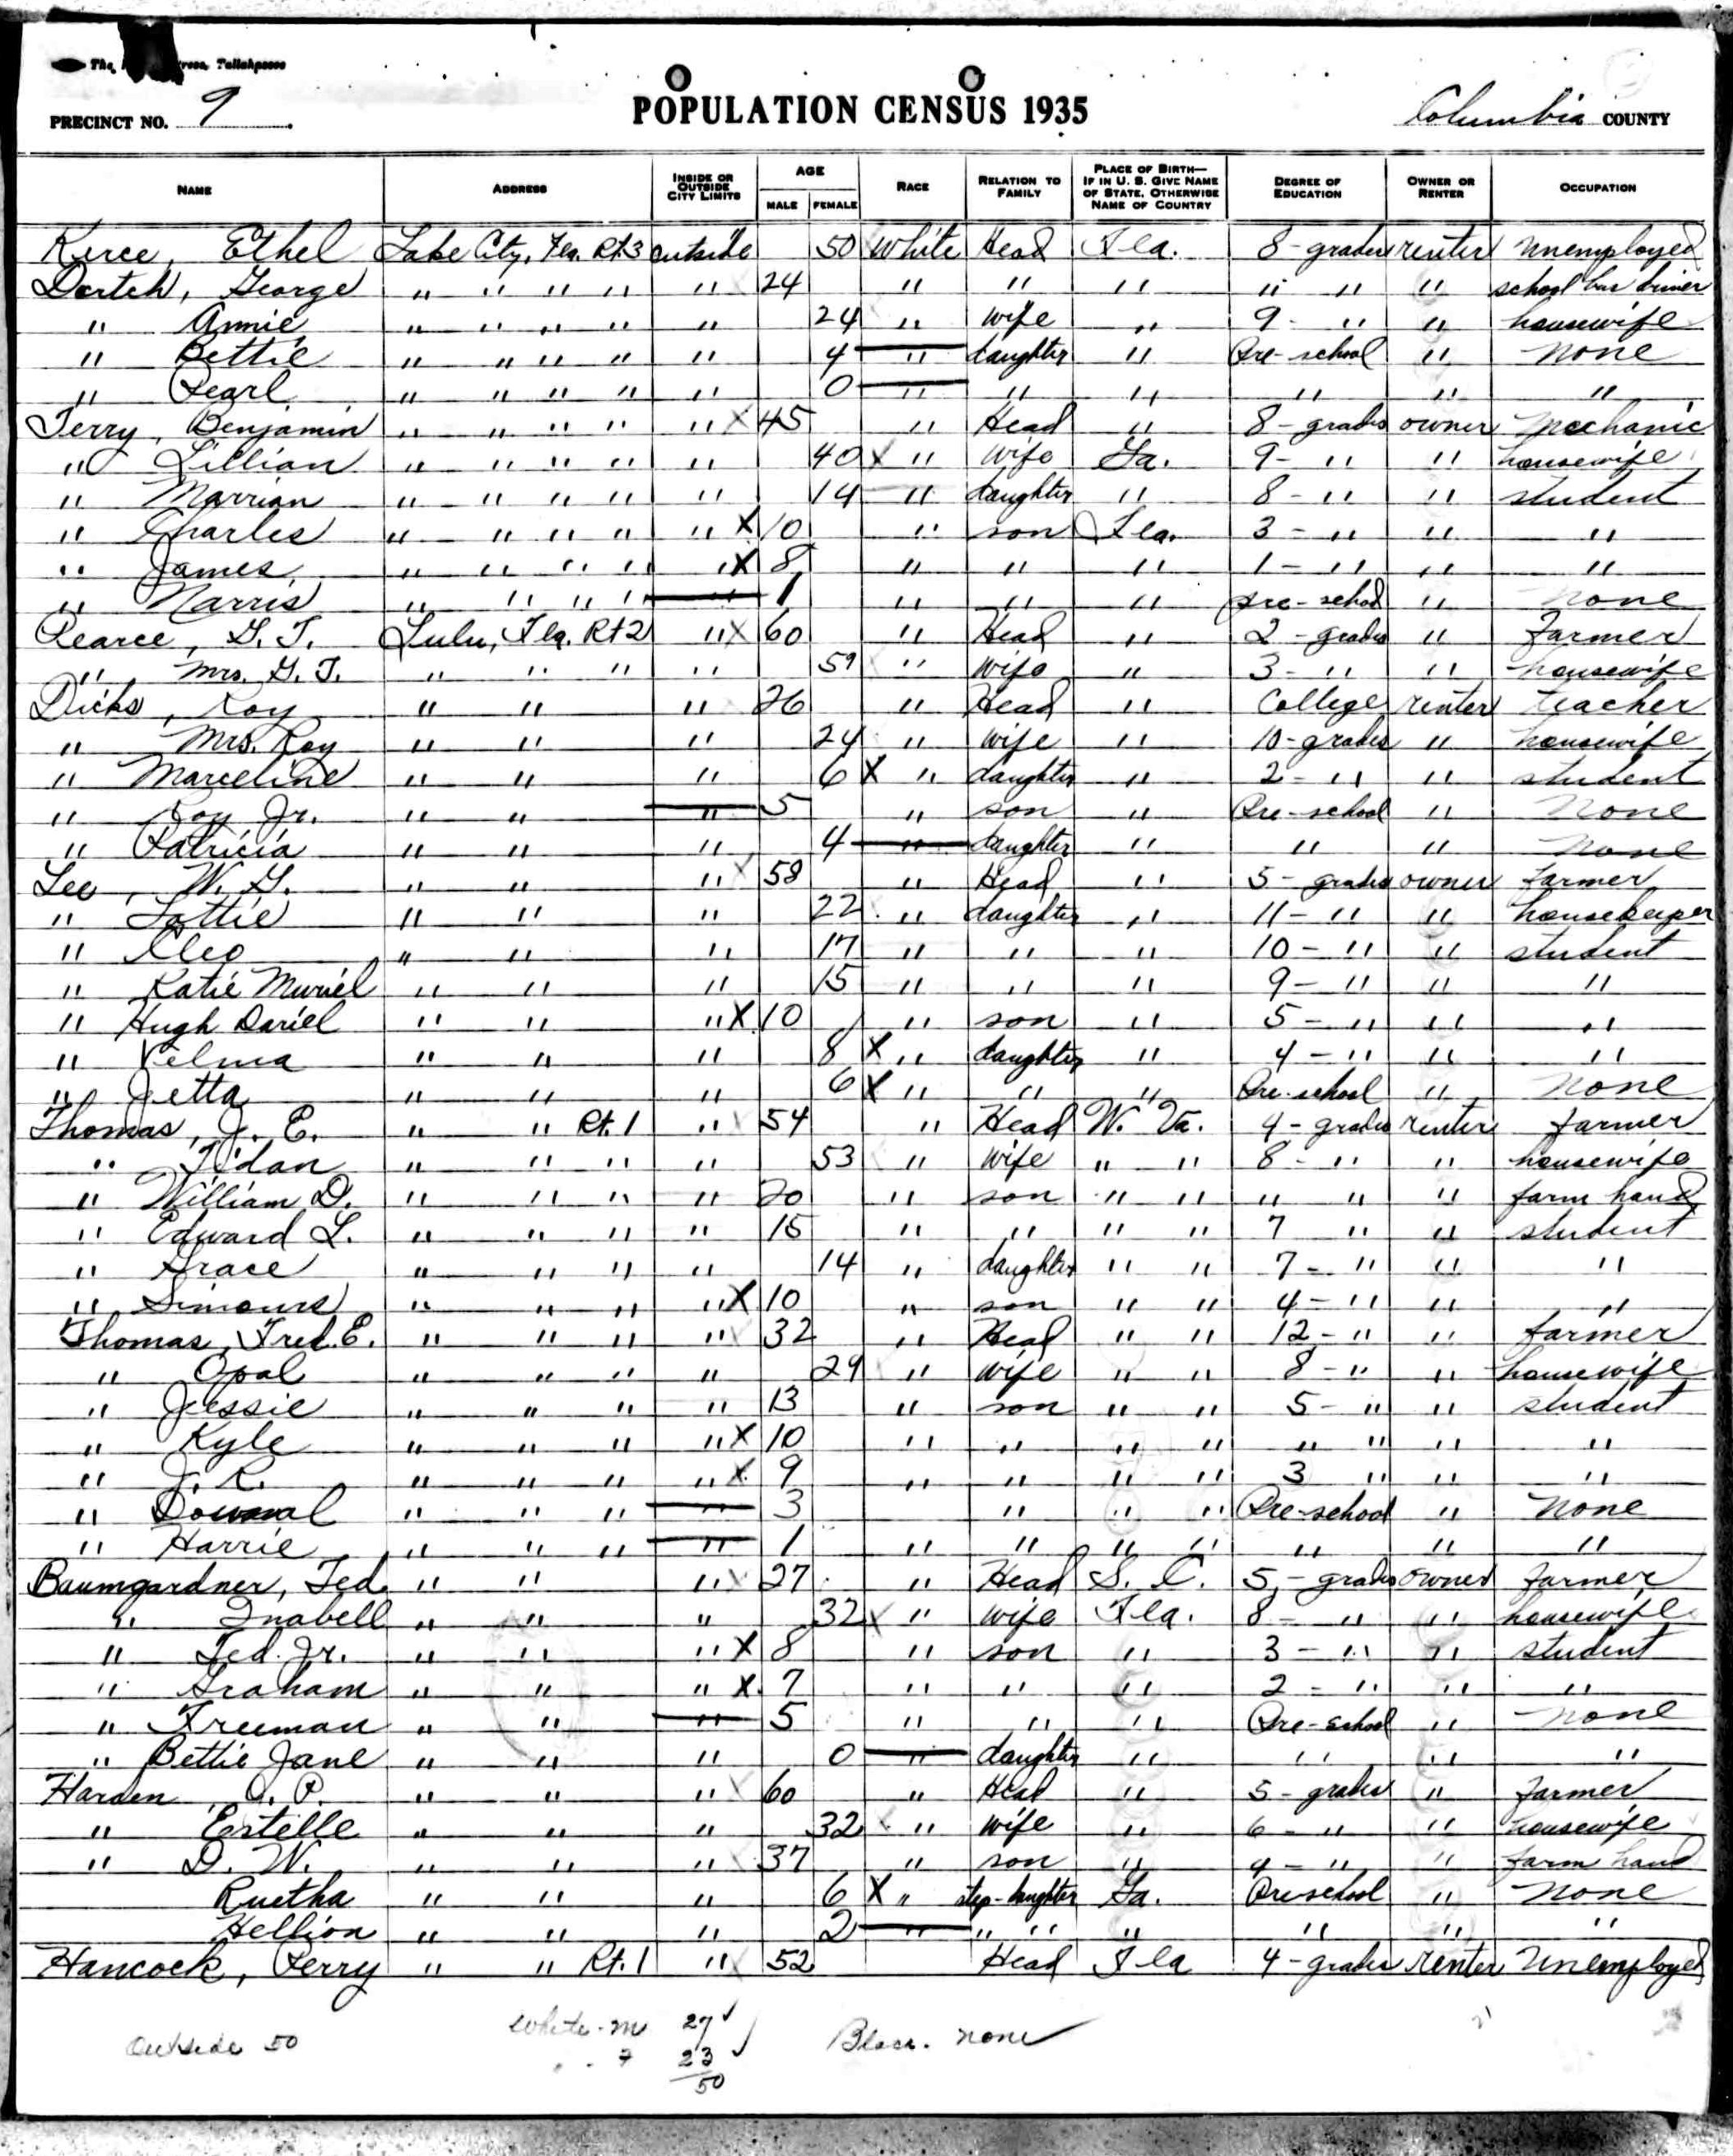 The Press, Tallahassee
PRECINCT NO. 9
POPULATION CENSUS 1935
Columbia COUNTY
NAME ADDRESS INSIDE OR OUTSIDE CITY LIMITS AGE MALE FEMALE RACE RELATION TO FAMILY PLACE OF BIRTH—IF IN U. S. GIVE NAME OF STATE, OTHERWISE NAME OF COUNTRY DEGREE OF EDUCATION OWNER OR RENTER OCCUPATION
Kerce, Ethel Lake City, Fla. Rt3 outside 50 White Head Fla. 8-grades renter unemployed
Dortch, George " " " " " 24 " " " " " " school bus driver
" Annie " " " " " 24 " wife " 9- " " housewife
" Bettie " " " " " 4 " daughter " Pre-school " none
" Pearl " " " " " 0 " " " " " "
Terry, Benjamin " " " " " X 45 " Head " 8-grades owner mechanic
" Lillian " " " " " 40 X " wife Ga. 9- " " housewife
" Marrian " " " " " 14 " daughter " 8- " " student
" Charles " " " " " X 10 " son Fla. 3- " " "
" James " " " " " X 8 " " " 1- " " "
" Narris " " " " " 1 " " " pre-school " none
Pearce, G. T. Lulu, Fla. Rt2 " X 60 " Head " 2-grades " farmer
" Mrs. G. T. " " " " 59 " wife " 3- " " housewife
Dicks, Roy " " " 26 " Head " College renter teacher
" Mrs. Roy " " " 24 " wife " 10-grades " housewife
" Marceline " " " 6 X " daughter " 2- " " student
" Roy Jr. " " " 5 " son " Pre-school " none
" Patricia " " " 4 " daughter " " " none
Lee, W. G. " " " X 58 " Head " 5-grades owner farmer
" Lottie " " " 22 " daughter " 11- " " housekeeper
" Cleo " " " 17 " " " 10- " " student
" Katie Muriel " " " 15 " " " 9- " " "
" Hugh Dariel " " " X 10 " son " 5- " " "
" Velma " " " 8 X " daughter " 4- " " "
" Jetta " " " 6 X " " " Pre-school " none
Thomas, J. E. " " Rt. 1 " 54 " Head W. Va. 4-grades renter farmer
" " " " " 53 " wife " " 8- " " housewife
" William D. " " " " 20 " son " " " " " farm hand
" Edward L. " " " " 15 " " " " 7 " " student
" Grace " " " " 14 " daughter " " 7- " " "
" " " " " X 10 " son " " 4- " " "
Thomas, Fred. E. " " " " 32 " Head " " 12- " " farmer
" Opal " " " " 29 " wife " " 8- " " housewife
" Jessie " " " " 13 " son " " 5- " " student
" Kyle " " " " X 10 " " " " " " " "
" J. R. " " " " X 9 " " " " 3 " " "
" " " " " 3 " " " Pre-school " none
" Harrie " " " " 1 " " " " " " "
Baumgardner, Ted " " " 27 " Head S. C. 5-grades owner farmer
" Inabell " " " 32 X " wife Fla. 8- " " housewife
" Ted. Jr. " " " X 8 " son " 3- " " student
" Graham " " " X 7 " " " 2- " " "
" Freeman " " " 5 " " " Pre-school " none
" Bettie Jane " " " 0 " daughter " " " "
Harden, O. P. " " " 60 " Head " 5-grades " farmer
" Estelle " " " 32 " wife " 6- " " housewife
" D. W. " " " 37 " son " 4- " " farm hand
Ruetha " " " 6 X " step-daughter Ga. Pre-school " none
Hellion " " " 2 " " " " " " "
Hancock, Perry " " Rt. 1 " 52 Head Fla 4-grades renter Unemployed
Outside 50 White-m 27 Black. none
" - F 23
50